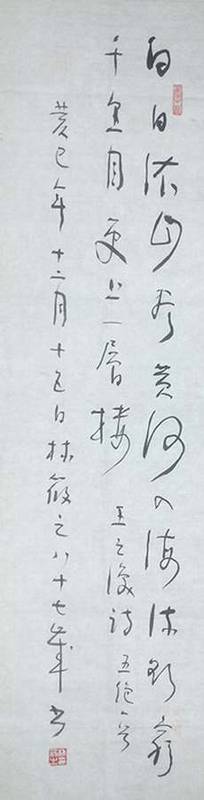 白日依山尽黄河入海流欲窮
千里目更上一層楼 王之渙诗 五绝一首
癸巳年十二月十五日林筱之八十七歲书